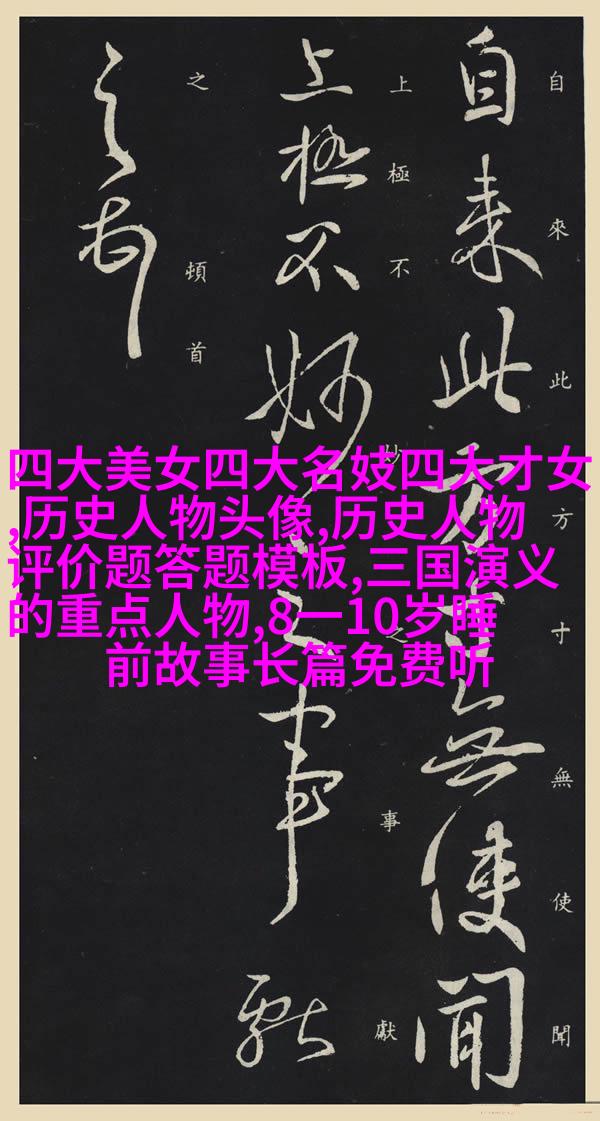 自来此方寸無使聞
自來此方寸無使聞
上極不妙之事獻
上極不妙之事獻
之頓首
之頓首
四大美女四大名妓四大才女
,历史人物头像,历史人物
评价题答题模板,三国演义
的重点人物,8一10岁睡
前故事长篇免费听